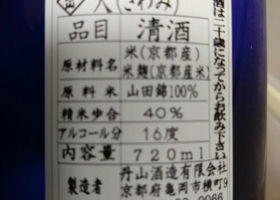 (きわみ)
品目 清酒
原材料名 米(京都産)
米麹(京都産米)
原料米 山田錦100%
精米歩合 40%
アルコール分 16度
内容量 720ml
製造者 丹山酒造有限会社
京都府亀岡市横町
酒は二十歳になってからお飲み下さい